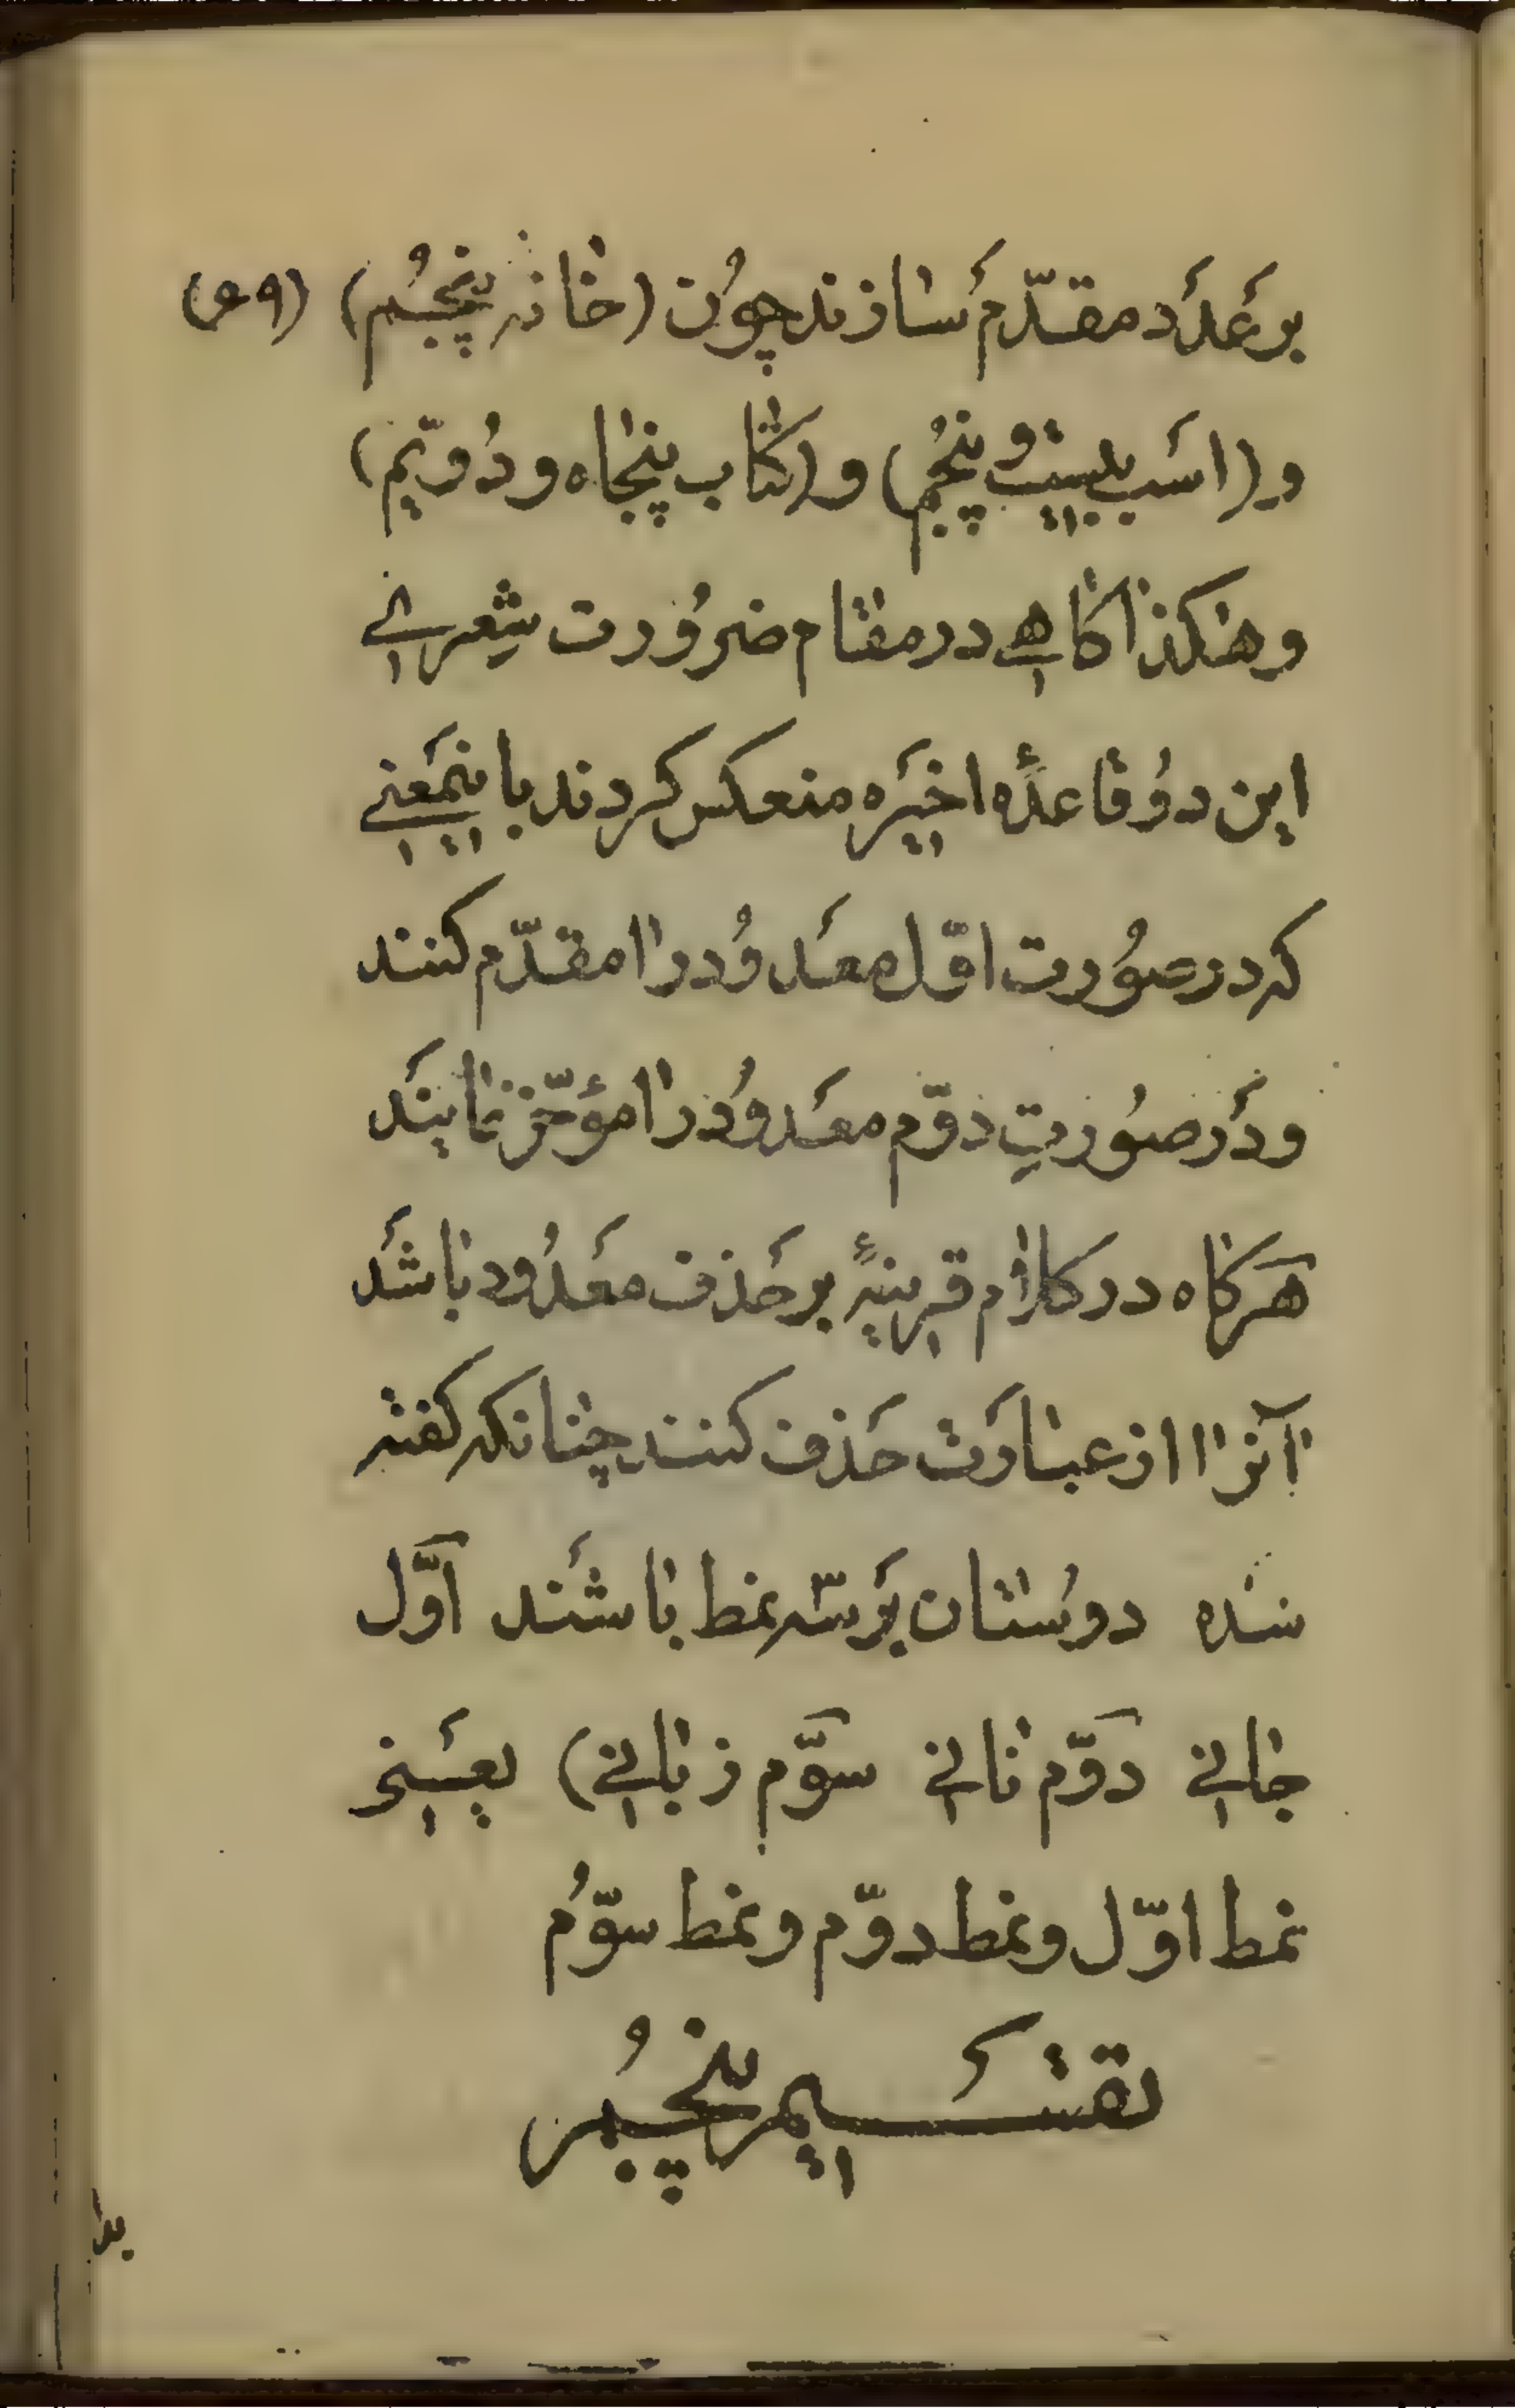 بر عَدَد مقدّم سازند چُون (خانه پنجُم) (۵۹)
و (اسَب بیست و پنجُم) و (کتاب پنجاه و دُویّم)
و هٰکذا کاهی در مقام ضرُورت شِعری
این دُو قاعدهٔ اخیَره منعکس کردند باینمَعنی
که در صُورت اوّل معَدوُد را مقدّم کنند
و دَر صُورتِ دوّم معَدوُد را مؤخّر نمایَند
هَرکاه در کلام قرینهٔ بر حَذف معَدُود باشَد
آنرا از عبارَت حَذف کنند چنانکه کفته
شده دوُستان بَر سّه نمط باشَند اوّل
جانی دوّم نانی سوّم زبانی) یعَنی
نمط اوّل و نمط دوّم و نمط سوّمُ
تقسَیم پنجُم
بد